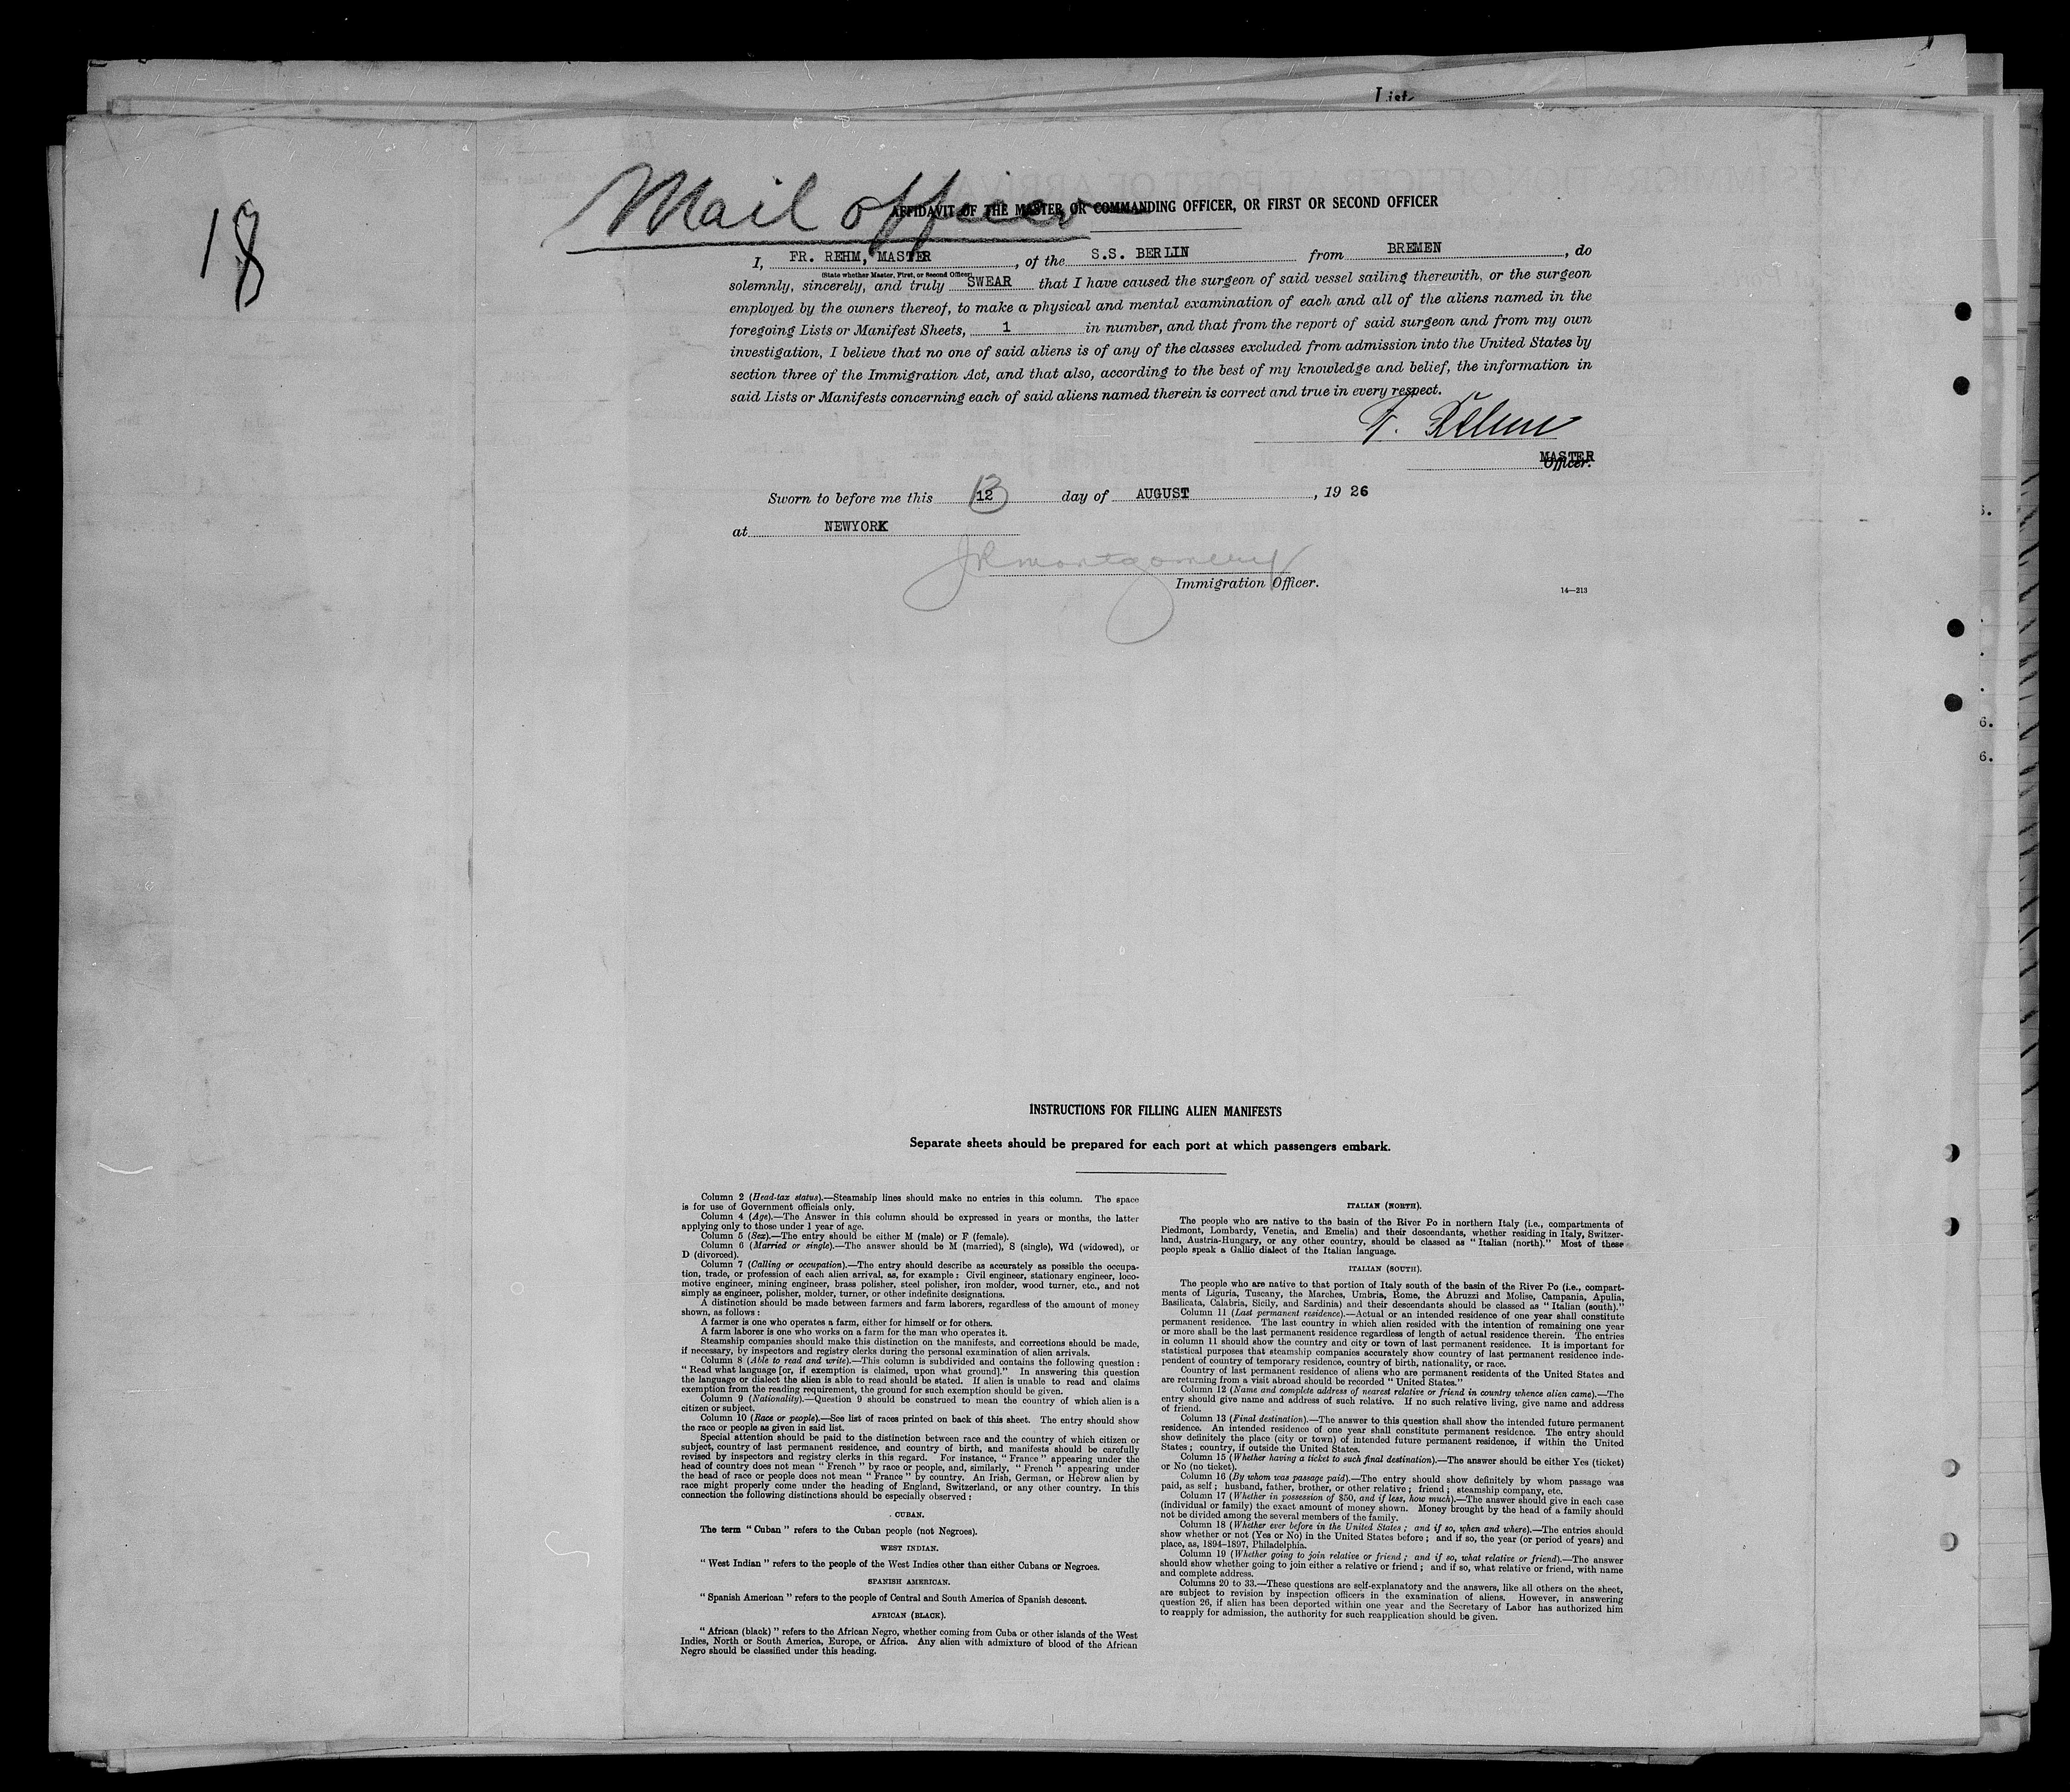 List
18
Mail officer
AFFIDAVIT OF THE MASTER, OR COMMANDING OFFICER, OR FIRST OR SECOND OFFICER
I, FR. REHM, MASTER, of the S.S. BERLIN from BREMEN, do
(State whether Master, First, or Second Officer)
solemnly, sincerely, and truly SWEAR that I have caused the surgeon of said vessel sailing therewith, or the surgeon
employed by the owners thereof, to make a physical and mental examination of each and all of the aliens named in the
foregoing Lists or Manifest Sheets, 1 in number, and that from the report of said surgeon and from my own
investigation, I believe that no one of said aliens is of any of the classes excluded from admission into the United States by
section three of the Immigration Act, and that also, according to the best of my knowledge and belief, the information in
said Lists or Manifests concerning each of said aliens named therein is correct and true in every respect.
F. Rehm
MASTER
Officer.
Sworn to before me this 12 13 day of AUGUST, 19 26
at NEWYORK
JR Montgomery
Immigration Officer.
14—213
INSTRUCTIONS FOR FILLING ALIEN MANIFESTS
Separate sheets should be prepared for each port at which passengers embark.
Column 2 (Head-tax status).—Steamship lines should make no entries in this column. The space
is for use of Government officials only.
Column 4 (Age).—The Answer in this column should be expressed in years or months, the latter
applying only to those under 1 year of age.
Column 5 (Sex).—The entry should be either M (male) or F (female).
Column 6 (Married or single).—The answer should be M (married), S (single), Wd (widowed), or
D (divorced).
Column 7 (Calling or occupation).—The entry should describe as accurately as possible the occupa-
tion, trade, or profession of each alien arrival, as, for example: Civil engineer, stationary engineer, loco-
motive engineer, mining engineer, brass polisher, steel polisher, iron molder, wood turner, etc., and not
simply as engineer, polisher, molder, turner, or other indefinite designations.
A distinction should be made between farmers and farm laborers, regardless of the amount of money
shown, as follows:
A farmer is one who operates a farm, either for himself or for others.
A farm laborer is one who works on a farm for the man who operates it.
Steamship companies should make this distinction on the manifests, and corrections should be made,
if necessary, by inspectors and registry clerks during the personal examination of alien arrivals.
Column 8 (Able to read and write).—This column is subdivided and contains the following question:
"Read what language [or, if exemption is claimed, upon what ground]." In answering this question
the language or dialect the alien is able to read should be stated. If alien is unable to read and claims
exemption from the reading requirement, the ground for such exemption should be given.
Column 9 (Nationality).—Question 9 should be construed to mean the country of which alien is a
citizen or subject.
Column 10 (Race or people).—See list of races printed on back of this sheet. The entry should show
the race or people as given in said list.
Special attention should be paid to the distinction between race and the country of which citizen or
subject, country of last permanent residence, and country of birth, and manifests should be carefully
revised by inspectors and registry clerks in this regard. For instance, "France" appearing under the
head of country does not mean "French" by race or people, and, similarly, "French" appearing under
the head of race or people does not mean "France" by country. An Irish, German, or Hebrew alien by
race might properly come under the heading of England, Switzerland, or any other country. In this
connection the following distinctions should be especially observed:
CUBAN.
The term "Cuban" refers to the Cuban people (not Negroes).
WEST INDIAN.
"West Indian" refers to the people of the West Indies other than either Cubans or Negroes.
SPANISH AMERICAN.
"Spanish American" refers to the people of Central and South America of Spanish descent.
AFRICAN (BLACK).
"African (black)" refers to the African Negro, whether coming from Cuba or other islands of the West
Indies, North or South America, Europe, or Africa. Any alien with admixture of blood of the African
Negro should be classified under this heading.
ITALIAN (NORTH).
The people who are native to the basin of the River Po in northern Italy (i.e., compartments of
Piedmont, Lombardy, Venetia, and Emelia) and their descendants, whether residing in Italy, Switzer-
land, Austria-Hungary, or any other country, should be classed as "Italian (north)." Most of these
people speak a Gallic dialect of the Italian language.
ITALIAN (SOUTH).
The people who are native to that portion of Italy south of the basin of the River Po (i.e., compart-
ments of Liguria, Tuscany, the Marches, Umbria, Rome, the Abruzzi and Molise, Campania, Apulia,
Basilicata, Calabria, Sicily, and Sardinia) and their descendants should be classed as "Italian (south)."
Column 11 (Last permanent residence).—Actual or an intended residence of one year shall constitute
permanent residence. The last country in which alien resided with the intention of remaining one year
or more shall be the last permanent residence regardless of length of actual residence therein. The entries
in column 11 should show the country and city or town of last permanent residence. It is important for
statistical purposes that steamship companies accurately show country of last permanent residence inde-
pendent of country of temporary residence, country of birth, nationality, or race.
Country of last permanent residence of aliens who are permanent residents of the United States and
are returning from a visit abroad should be recorded "United States."
Column 12 (Name and complete address of nearest relative or friend in country whence alien came).—The
entry should give name and address of such relative. If no such relative living, give name and address
of friend.
Column 13 (Final destination).—The answer to this question shall show the intended future permanent
residence. An intended residence of one year shall constitute permanent residence. The entry should
show definitely the place (city or town) of intended future permanent residence, if within the United
States; country, if outside the United States.
Column 15 (Whether having a ticket to such final destination).—The answer should be either Yes (ticket)
or No (no ticket).
Column 16 (By whom was passage paid).—The entry should show definitely by whom passage was
paid, as self; husband, father, brother, or other relative; friend; steamship company, etc.
Column 17 (Whether in possession of $50, and if less, how much).—The answer should give in each case
(individual or family) the exact amount of money shown. Money brought by the head of a family should
not be divided among the several members of the family.
Column 18 (Whether ever before in the United States; and if so, when and where).—The entries should
show whether or not (Yes or No) in the United States before; and if so, the year (or period of years) and
place, as, 1894–1897, Philadelphia.
Column 19 (Whether going to join relative or friend; and if so, what relative or friend).—The answer
should show whether going to join either a relative or friend; and if so, what relative or friend, with name
and complete address.
Columns 20 to 33.—These questions are self-explanatory and the answers, like all others on the sheet,
are subject to revision by inspection officers in the examination of aliens. However, in answering
question 26, if alien has been deported within one year and the Secretary of Labor has authorized him
to reapply for admission, the authority for such reapplication should be given.
6.
6.